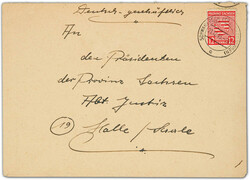 Deutsch-geschäftlich
An
den Präsidenten
der Provinz Sachsen
Abt. Justiz
19 Halle/Saale
12 12